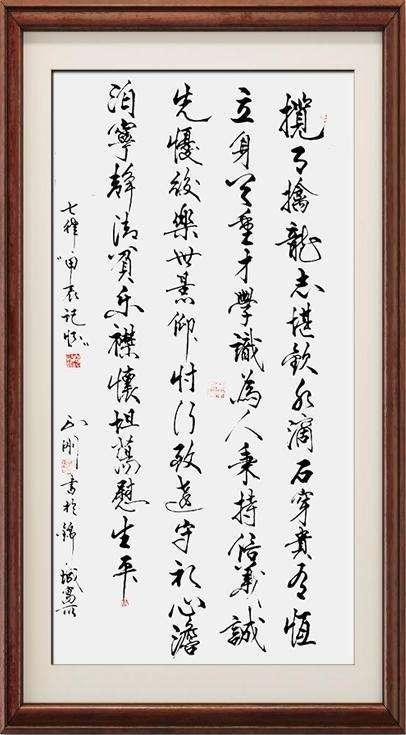 攬月擒龍志堪欽水滴石穿貴有恆
立身重才學識為人秉持信義誠
先憂後樂世景仰忖行致遠守初心澹
泊寧靜清貧樂襟懷坦蕩慰生平
七律“甲辰記懷”
書於錦城寓所